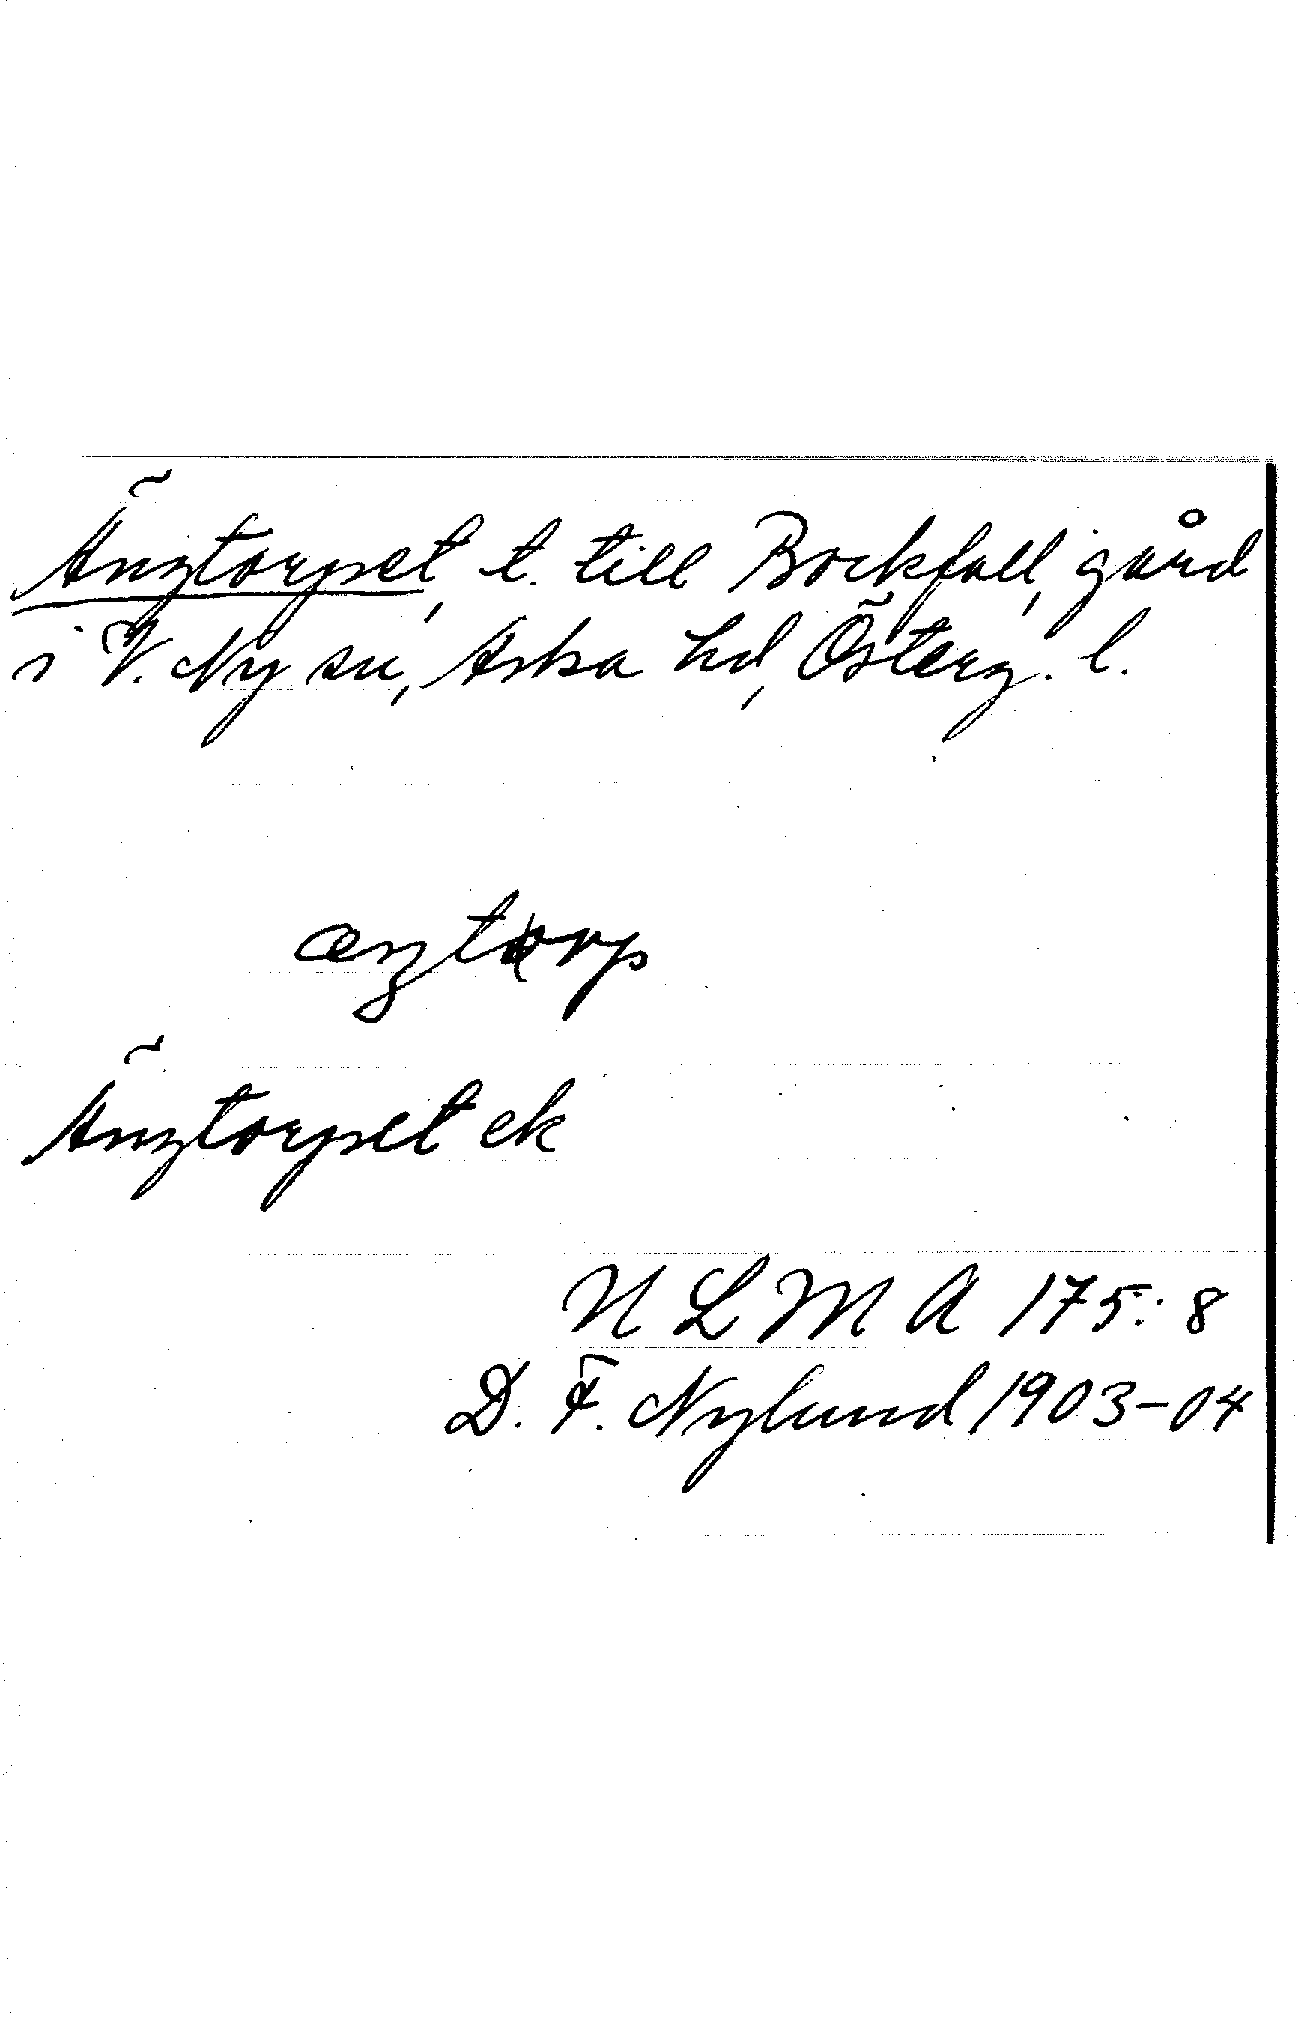 Ängtorpet, t. till Bockfall, gård
i V. Ny sn, Aska hd, Österg. l.
Ängtorpet ek
N L M A 175:8
D. F. Nylund 1903-04